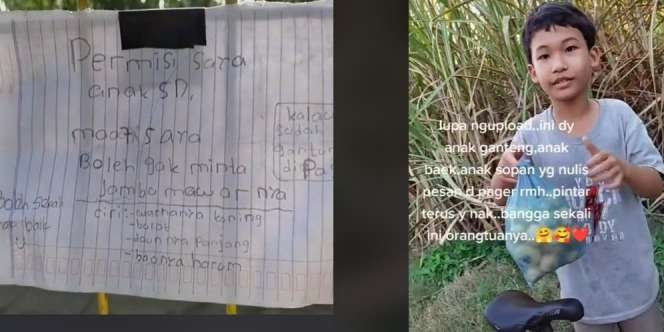 Permisi Sara
anak SD.
maaf Sara
Boleh gak minta
Jambu mawar nya
Ciri:-warnanya kuning
-bulat
-daun nya panjang
-baonya harum
kalau
sudah
lupa ngupload..ini dy
anak ganteng,anak
baek,anak sopan yg nulis
pesan d pager rmh..pintar
terus y nak..bangga sekali
ini orangtuanya..🤗🥰❤️